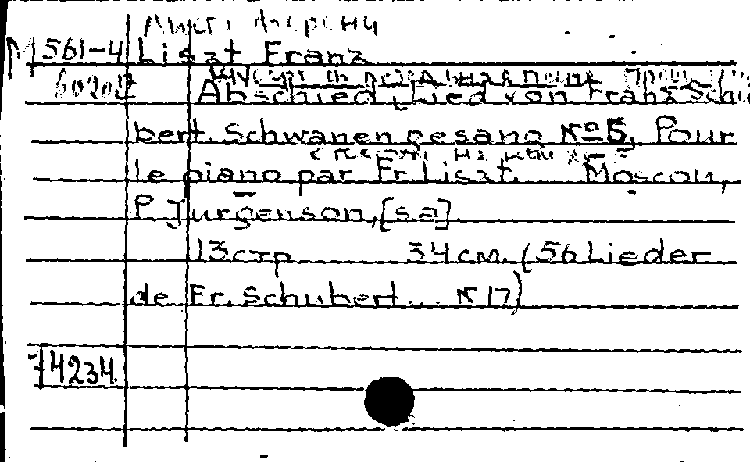 М 561-4 Liszt Franz
Abschied, Lied von Franz Schu
bert. Schwanengesang № 5. Pour
le piano par Fr. Liszt. Moscou,
P. Jurgenson, [s a]
13 стр 34 см. (56 Lieder
de Fr. Schubert... № 17)
74234